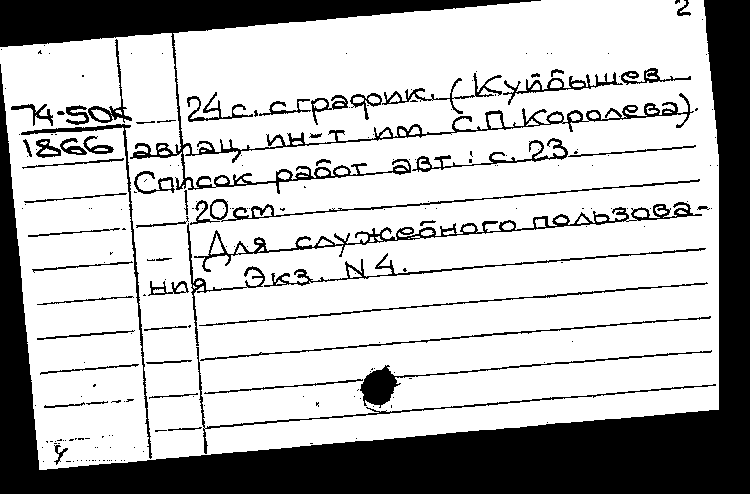 2
74-50к 24 с. с график. (Куйбышев.
1866 авиац. ин-т им С.П.Королева).
Список работ авт.: с. 23.
20 см.
Для служебного пользова-
ния. Экз. N 4.